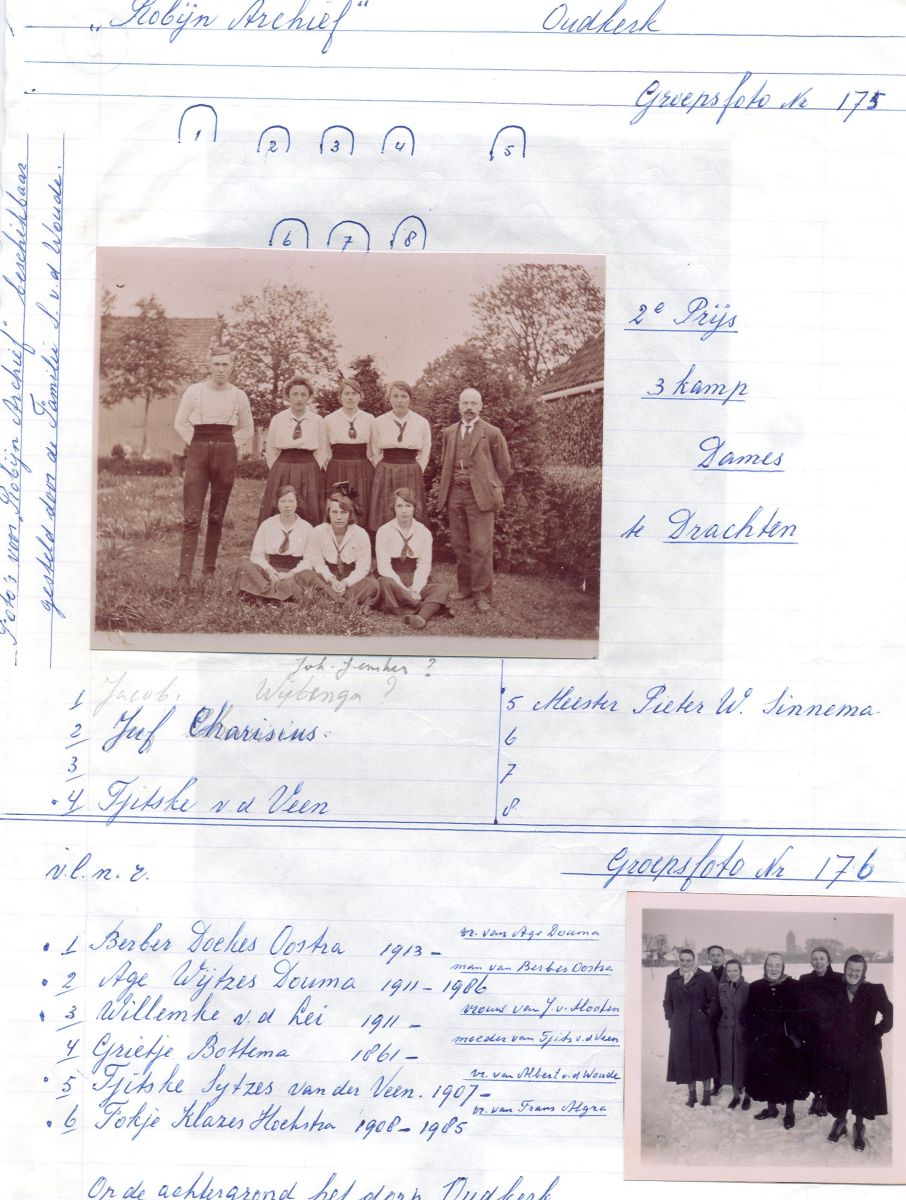 „Robijn Archief" Oudkerk
Groepsfoto Nr 175
1
2 3 4 5
6 7 8
Foto's voor „Robijn Archief" beschikbaar
gesteld door de Familie S. v.d Woude.
2e Prijs
3 kamp
Dames
te Drachten
Joh. ?
1 Jacob. Wijbenga ?
2 Juf Charisius.
3
4 Tjitske v d Veen
5 Meester Pieter W. Sinnema.
6
7
8
Groepsfoto Nr 176
v.l.n.r.
1 Berber Doekes Oostra 1913- vr. van Age Douma
2 Age Wijtzes Douma 1911-1986 man van Berber Oostra
3 Willemke v.d Lei 1911- vrouw van J. v. Mooten
4 Grietje Bottema 1861- moeder van Tjits v.d Veen
5 Tjitske Sytzes van der Veen. 1907- vr. van Albert v.d Woude
6 Fokje Klazes Hoekstra 1908-1985 vr. van Frans Algra
Op de achtergrond het dorp Oudkerk